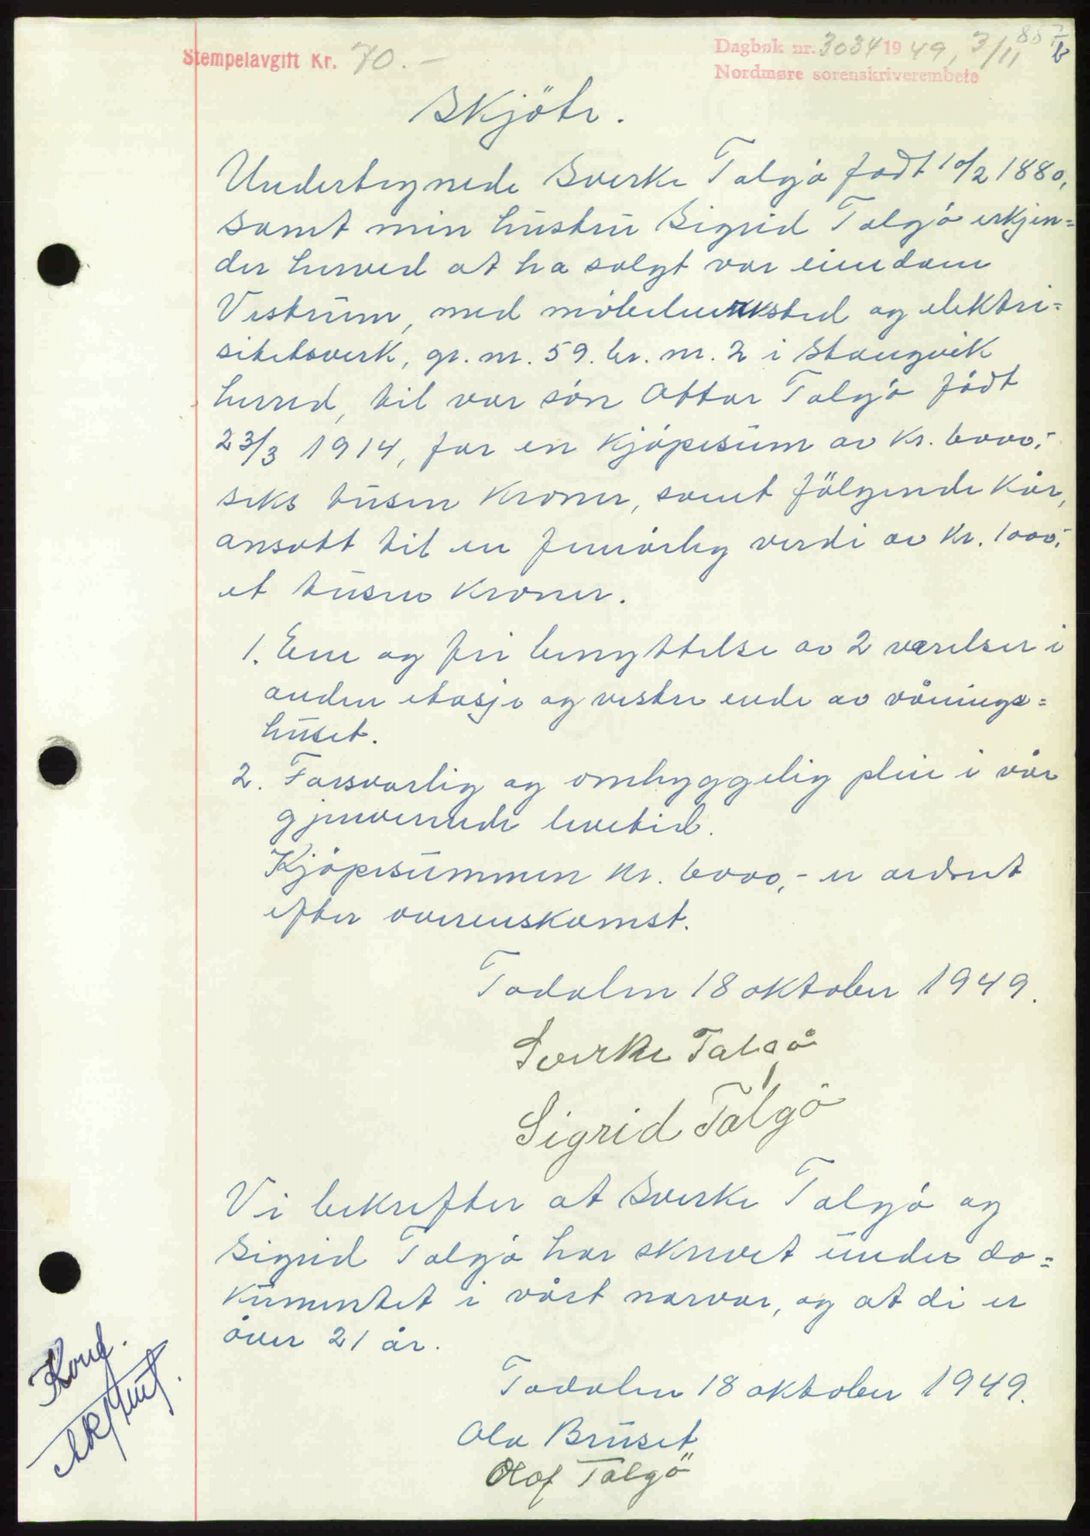 Stempelavgift Kr. 70.-
Dagbok nr. 3034 1949, 3/11
Nordmøre sorenskriverembete
Skjöte.
Undertegnede Sverke Talgö födt 10/2 1880,
samt min hustru Sigrid Talgö erkjen=
der herved at ha solgt vor eiendom
Vestrum, med möbelverksted og elektri=
sitetsverk, gr. nr. 59. br. nr. 2 i Stangvik
herred, til vor sön Ottar Talgö födt
23/3 1914, for en kjöpesum av kr. 6000,-
seks tusen kroner, samt fölgende kår,
ansatt til en femårlig verdi av kr. 1000,-
et tusen kroner.
1. Ene og fri benyttelse av 2 værelser i
anden etasje og vestre ende av vånings=
huset.
2. Forsvarlig og omhyggelig pleie i vår
gjenverende levetid.
Kjöpesummen kr. 6000,- er ordnet
efter overenskomst.
Todalen 18 oktober 1949.
Sverke Talgö
Sigrid Talgö
Vi bekrefter at Sverke Talgö og
Sigrid Talgö har skrevet under do=
kumentet i vårt nærvær, og at di er
över 21 år.
Todalen 18 oktober 1949.
Ola Bruset
Olaf Talgö
Konf.